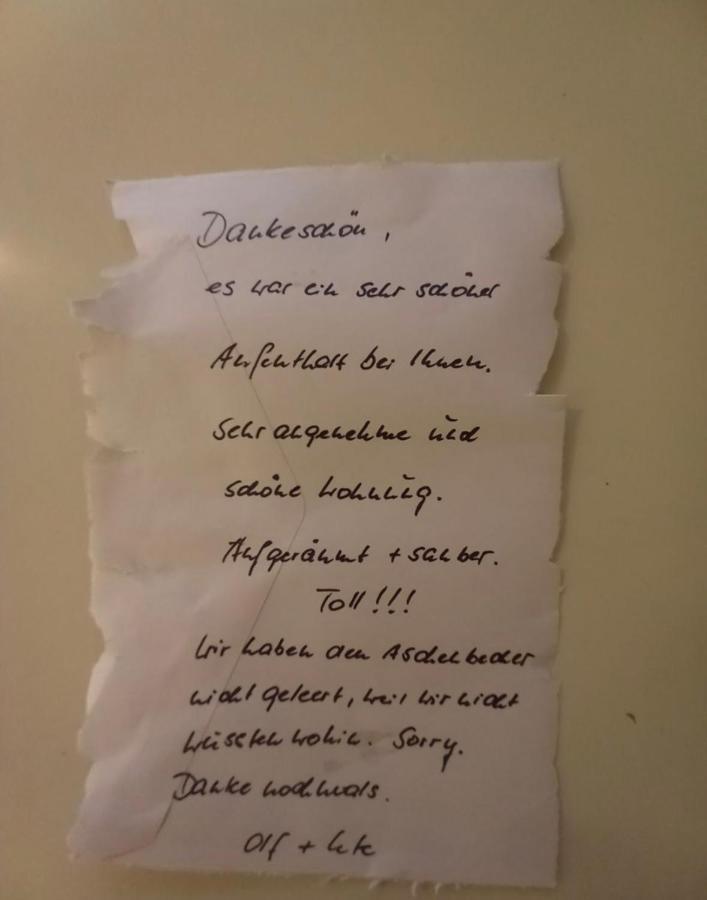 Dankeschön,
es war ein sehr schöner
Aufenthalt bei Ihnen.
Sehr angenehme und
schöne Wohnung.
Aufgeräumt + sauber.
Toll!!!
Wir haben den Aschenbecher
nicht geleert, weil wir nicht
wussten wohin. Sorry.
Danke nochmals.
Olf +